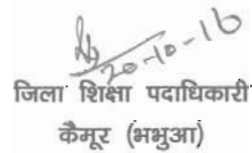 20-10-16
जिला शिक्षा पदाधिकारी
कैमूर (भभुआ)